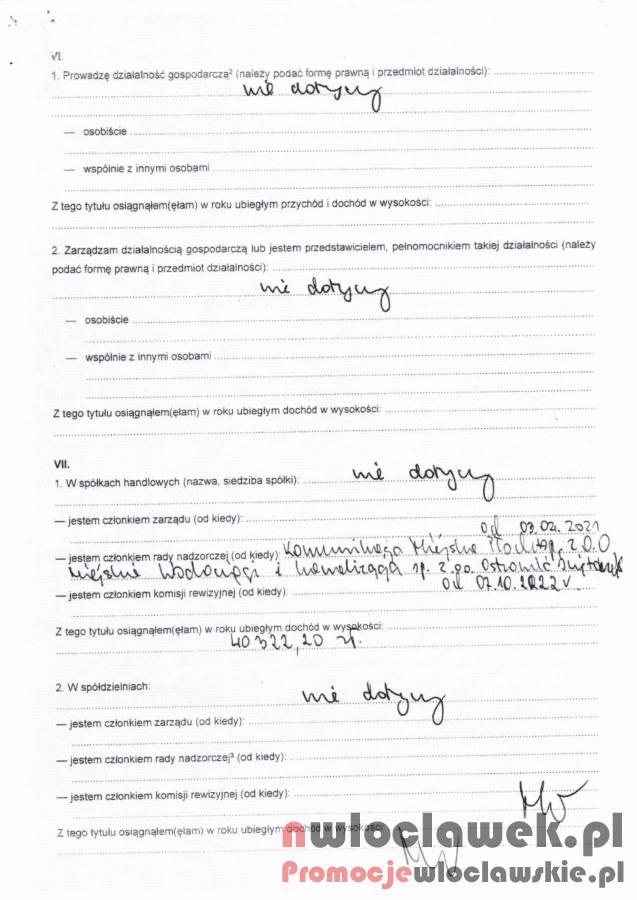 VI.
1. Prowadzę działalność gospodarczą² (należy podać formę prawną i przedmiot działalności):
nie dotyczy
— osobiście
— wspólnie z innymi osobami
Z tego tytułu osiągnąłem(ęłam) w roku ubiegłym przychód i dochód w wysokości:
2. Zarządzam działalnością gospodarczą lub jestem przedstawicielem, pełnomocnikiem takiej działalności (należy
podać formę prawną i przedmiot działalności):
nie dotyczy
— osobiście
— wspólnie z innymi osobami
Z tego tytułu osiągnąłem(ęłam) w roku ubiegłym dochód w wysokości:
VII.
1. W spółkach handlowych (nazwa, siedziba spółki): nie dotyczy
— jestem członkiem zarządu (od kiedy):
od 03.02.2021
— jestem członkiem rady nadzorczej (od kiedy): Komunikacja Miejska Płock sp. z o.o
Miejskie Wodociągi i Kanalizacja sp. z o.o. Ostrowiec
od 07.10.2022 r.
— jestem członkiem komisji rewizyjnej (od kiedy):
Z tego tytułu osiągnąłem(ęłam) w roku ubiegłym dochód w wysokości:
40 322,20 zł.
2. W spółdzielniach:
nie dotyczy
— jestem członkiem zarządu (od kiedy):
— jestem członkiem rady nadzorczej³ (od kiedy):
— jestem członkiem komisji rewizyjnej (od kiedy):
Z tego tytułu osiągnąłem(ęłam) w roku ubiegłym dochód w wysokości:
nwloclawek.pl
Promocjewloclawskie.pl